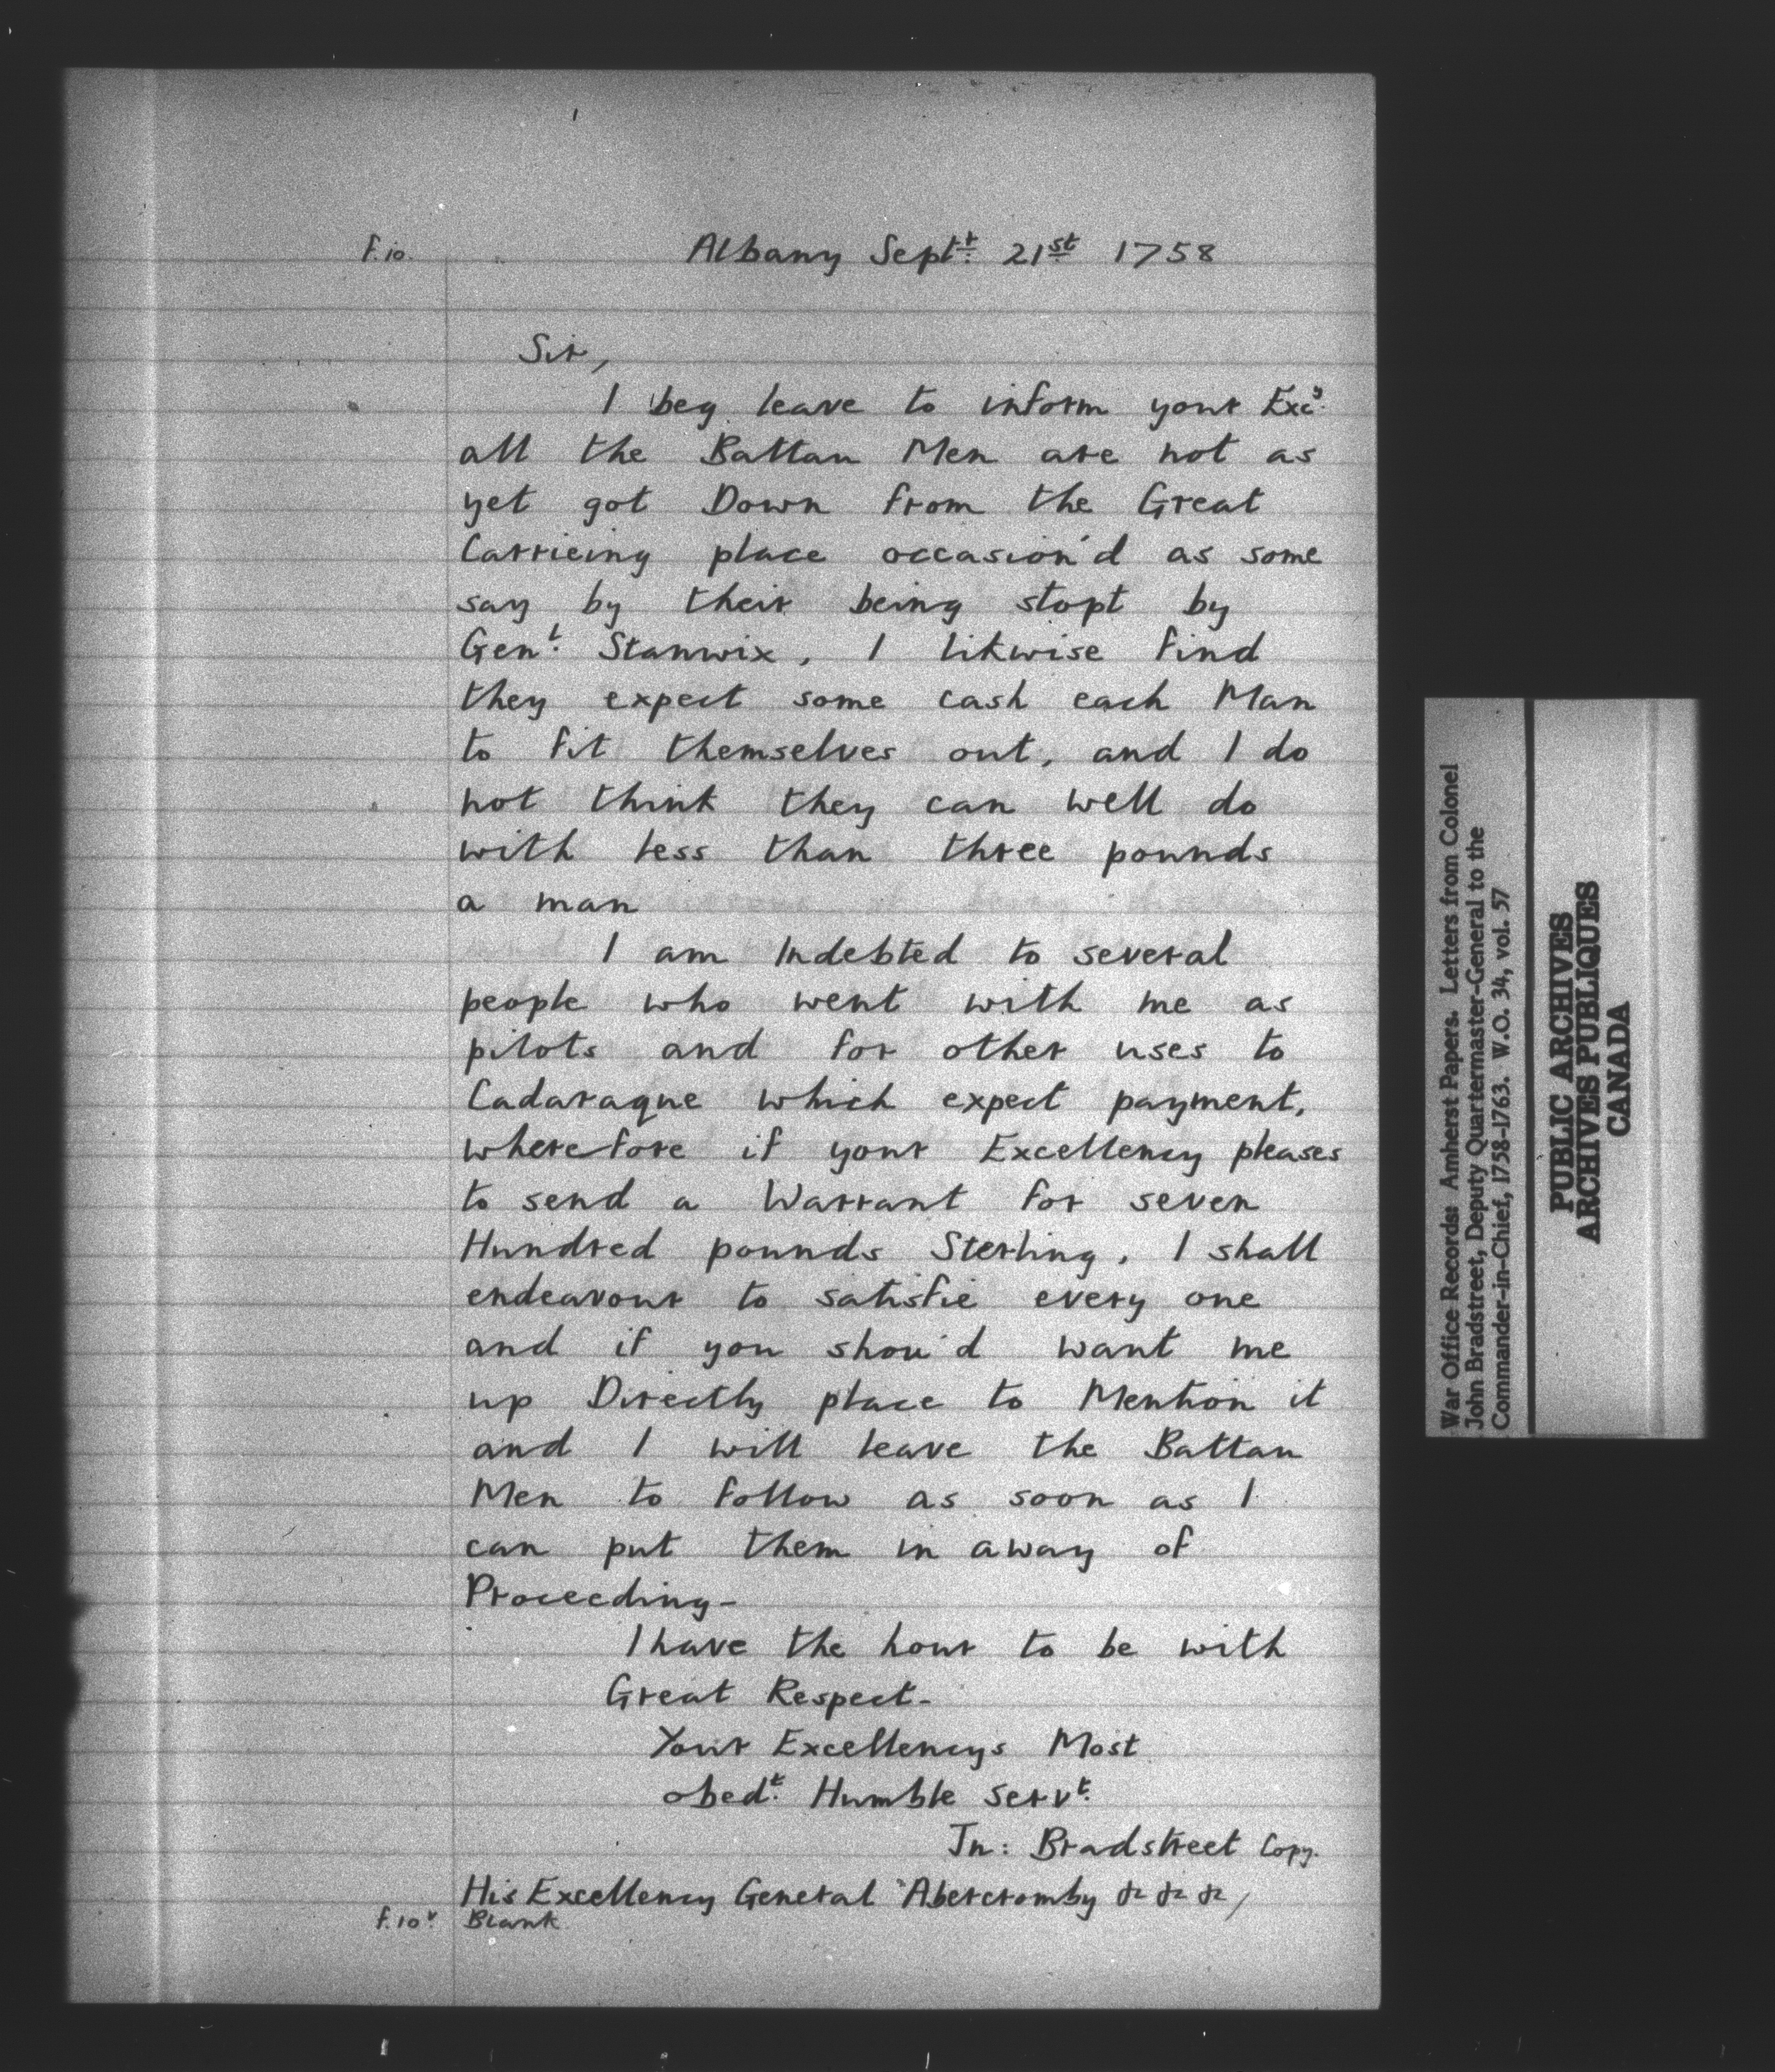 F.10. Albany Septr. 21st 1758
Sir,
I beg leave to inform your Excy.
all the Battau Men are not as
yet got Down from the Great
Carrieing place occasion'd as some
say by their being stopt by
Genl. Stanwix, I likwise find
they expect some cash each Man
to fit themselves out, and I do
not think they can well do
with less than three pounds
a man
I am Indebted to several
people who went with me as
pilots and for other uses to
Cadaraque which expect payment,
wherefore if your Excellency pleases
to send a Warrant for seven
Hundred pounds Sterling, I shall
endeavour to satisfie every one
and if you shou'd want me
up Directly place to Mention it
and I will leave the Battau
Men to follow as soon as I
can put them in away of
Proceeding-
I have the honr to be with
Great Respect-
Your Excellencys Most
obedt. Humble Servt.
Jn: Bradstreet Copy.
His Excellency General Abercromby &c &c &c/
F.10v. Blank
War Office Records: Amherst Papers. Letters from Colonel
John Bradstreet, Deputy Quartermaster-General to the
Commander-in-Chief, 1758-1763. W.O. 34, vol. 57
PUBLIC ARCHIVES
ARCHIVES PUBLIQUES
CANADA